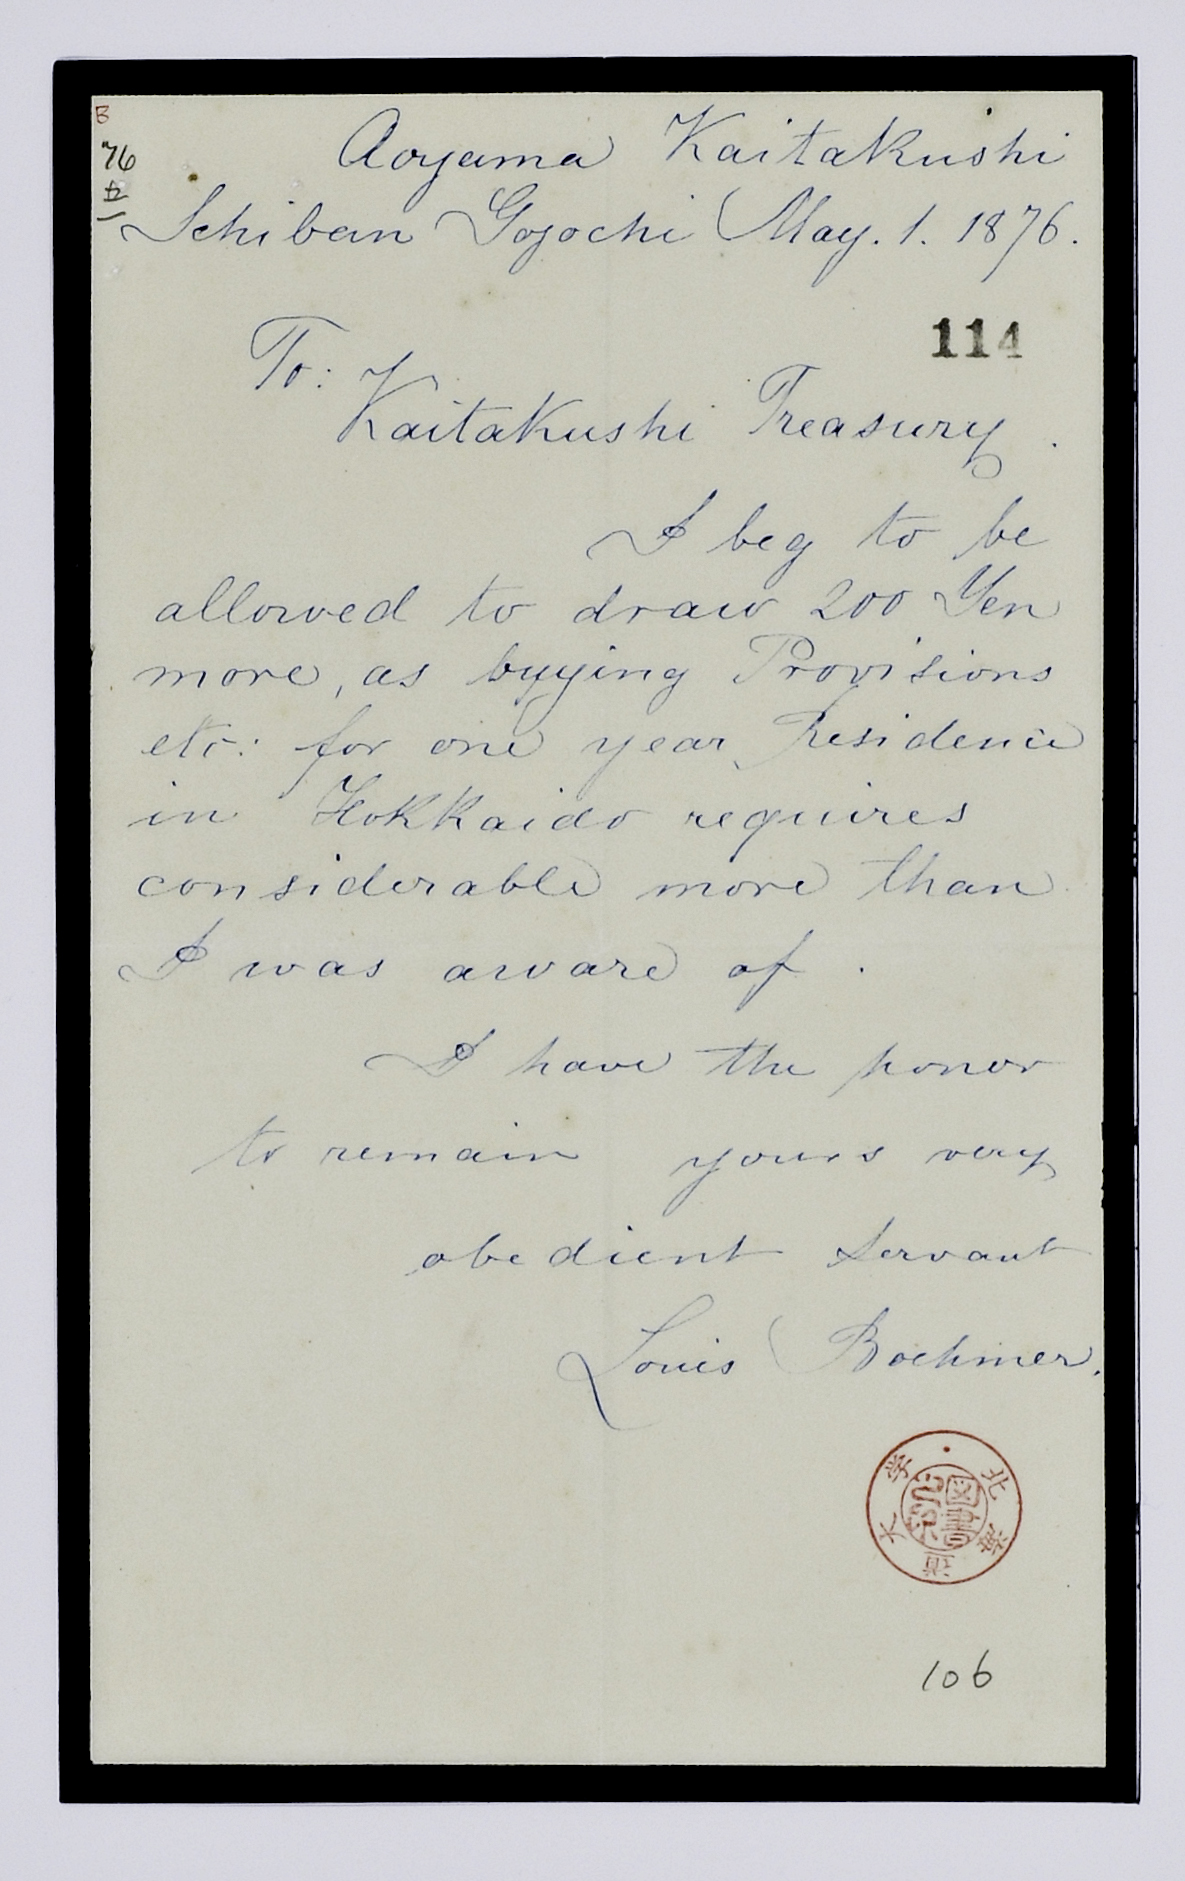 B
76
Aoyama Kaitakushi
Ichiban Gojochi May. 1. 1876.
114
To:
Kaitakushi Treasury.
I beg to be
allowed to draw 200 Yen
more, as buying Provisions
etc: for one year Residence
in Hokkaido requires
considerable more than
I was aware of.
I have the honor
to remain yours very
obedient servant
Louis Boehmer.
北海道大学
図書之印
106